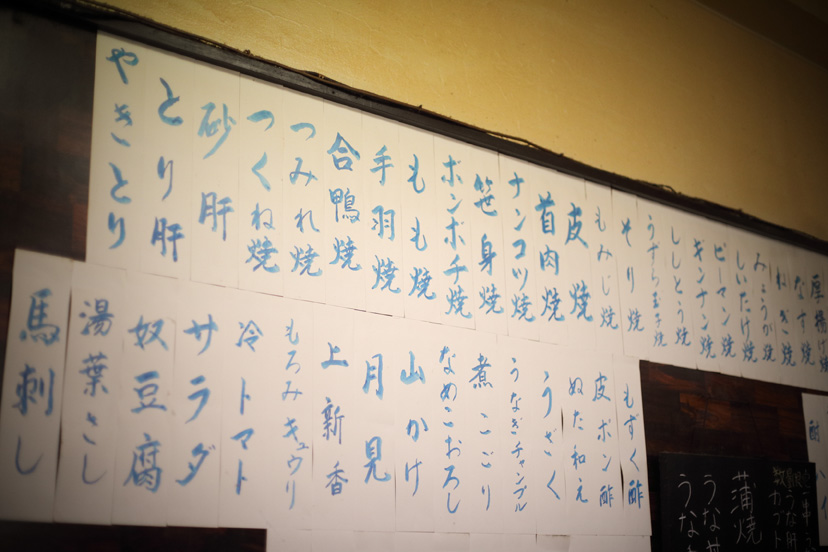 やきとり
とり肝
砂肝
つくね焼
つみれ焼
合鴨焼
手羽焼
もも焼
ボンボチ焼
笹身焼
ナンコツ焼
首肉焼
皮焼
もみじ焼
そり焼
うずら玉子焼
ししとう焼
ギンナン焼
ピーマン焼
しいたけ焼
みょうが焼
ねぎ焼
なす焼
厚揚げ焼
馬刺し
湯葉さし
奴豆腐
サラダ
冷トマト
もろみキュウリ
上新香
月見
山かけ
なめこおろし
煮こごり
うなぎチャンプル
うざく
ぬた和え
皮ポン酢
もずく酢
蒲焼